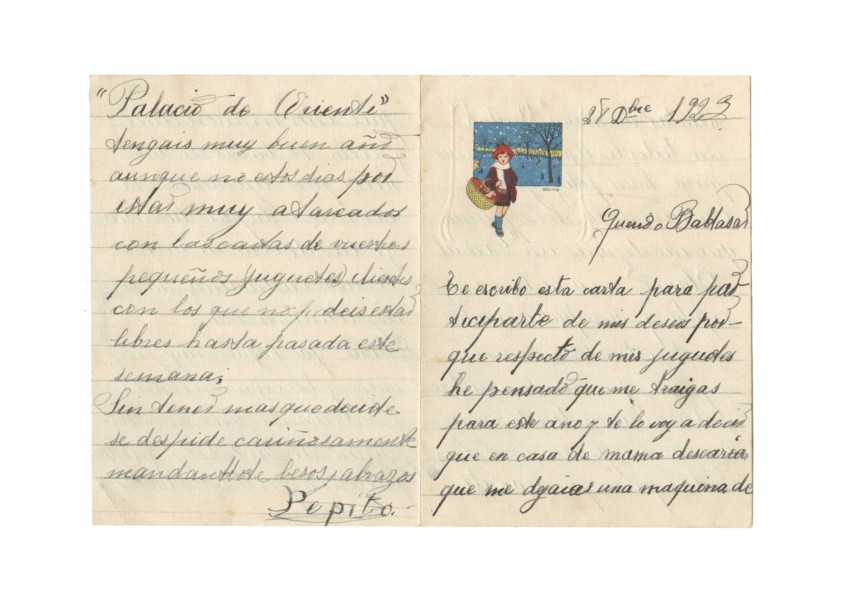 28 Dbre 1923
Querido Baltasar
Te escribo esta carta para par
ticiparte de mis deseos por-
que respecto de mis juguetes
he pensado que me traigas
para este ano y te lo voy a decir
que en casa de mama desearia
que me una maquina de
"Palacio de Oriente"
tengais muy buen año
aunque no estos dias por
estar muy atareados
con las cartas de vuestros
pequeños (juguetes) clientes
con los que no podeis estar
libres hasta pasada este
semana;
Sin tener mas que decirte
se despide cariñosamente
mandandote besos y abrazos
Pepito.